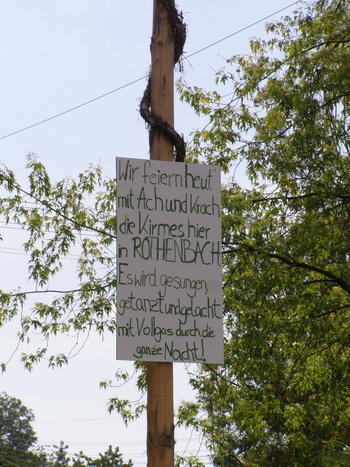 Wir feiern heut'
mit Ach und Krach
die Kirmes hier
in ROTHENBACH
Es wird gesungen,
getanzt und gelacht
mit Vollgas durch die
ganze Nacht!